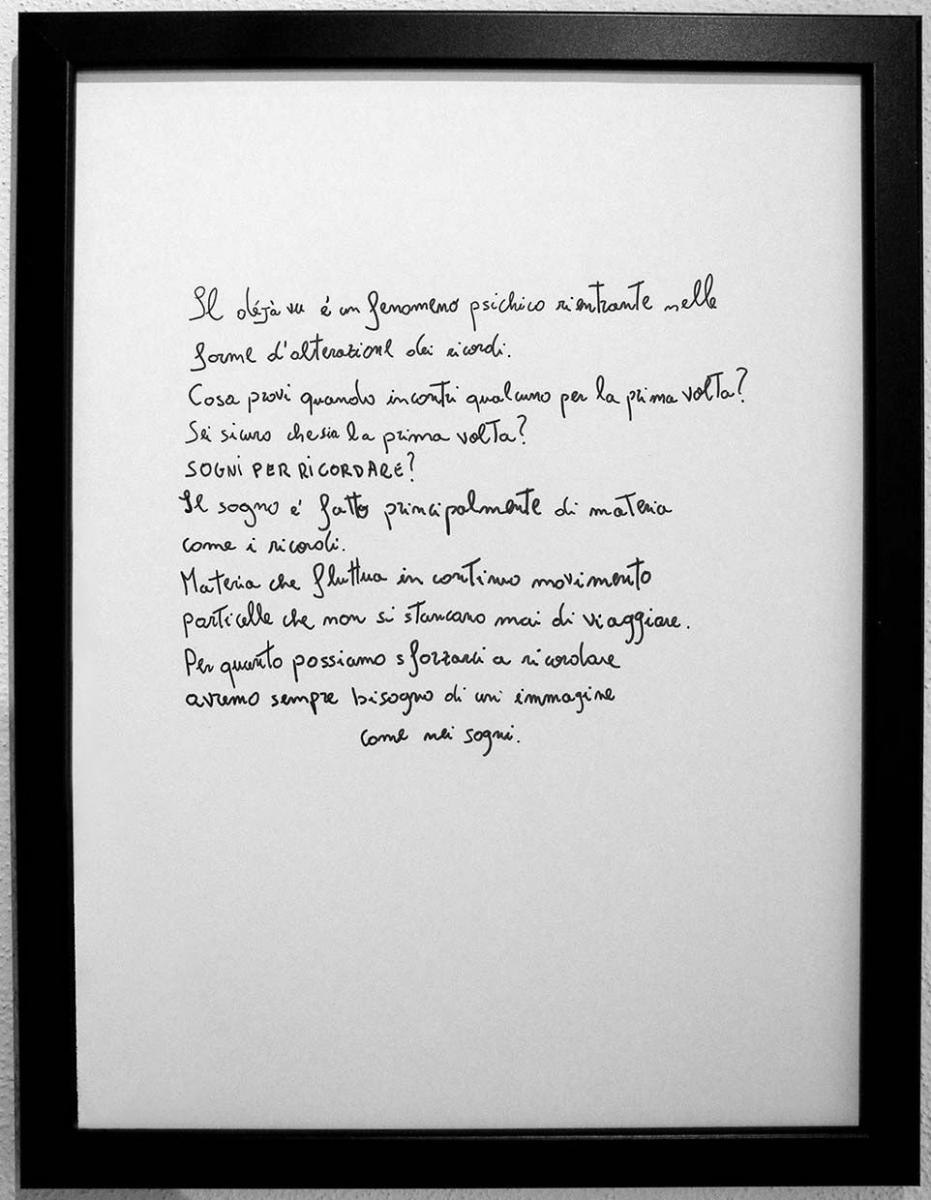 Il déjà vu é un fenomeno psichico rientrante nelle
forme d'alterazione dei ricordi.
Cosa provi quando incontri qualcuno per la prima volta?
Sei sicuro che sia la prima volta?
SOGNI PER RICORDARE?
Il sogno é fatto principalmente di materia
come i ricordi.
Materia che fluttua in continuo movimento
particelle che non si stancano mai di viaggiare.
Per quanto possiamo sforzarci a ricordare
avremo sempre bisogno di un immagine
come nei sogni.